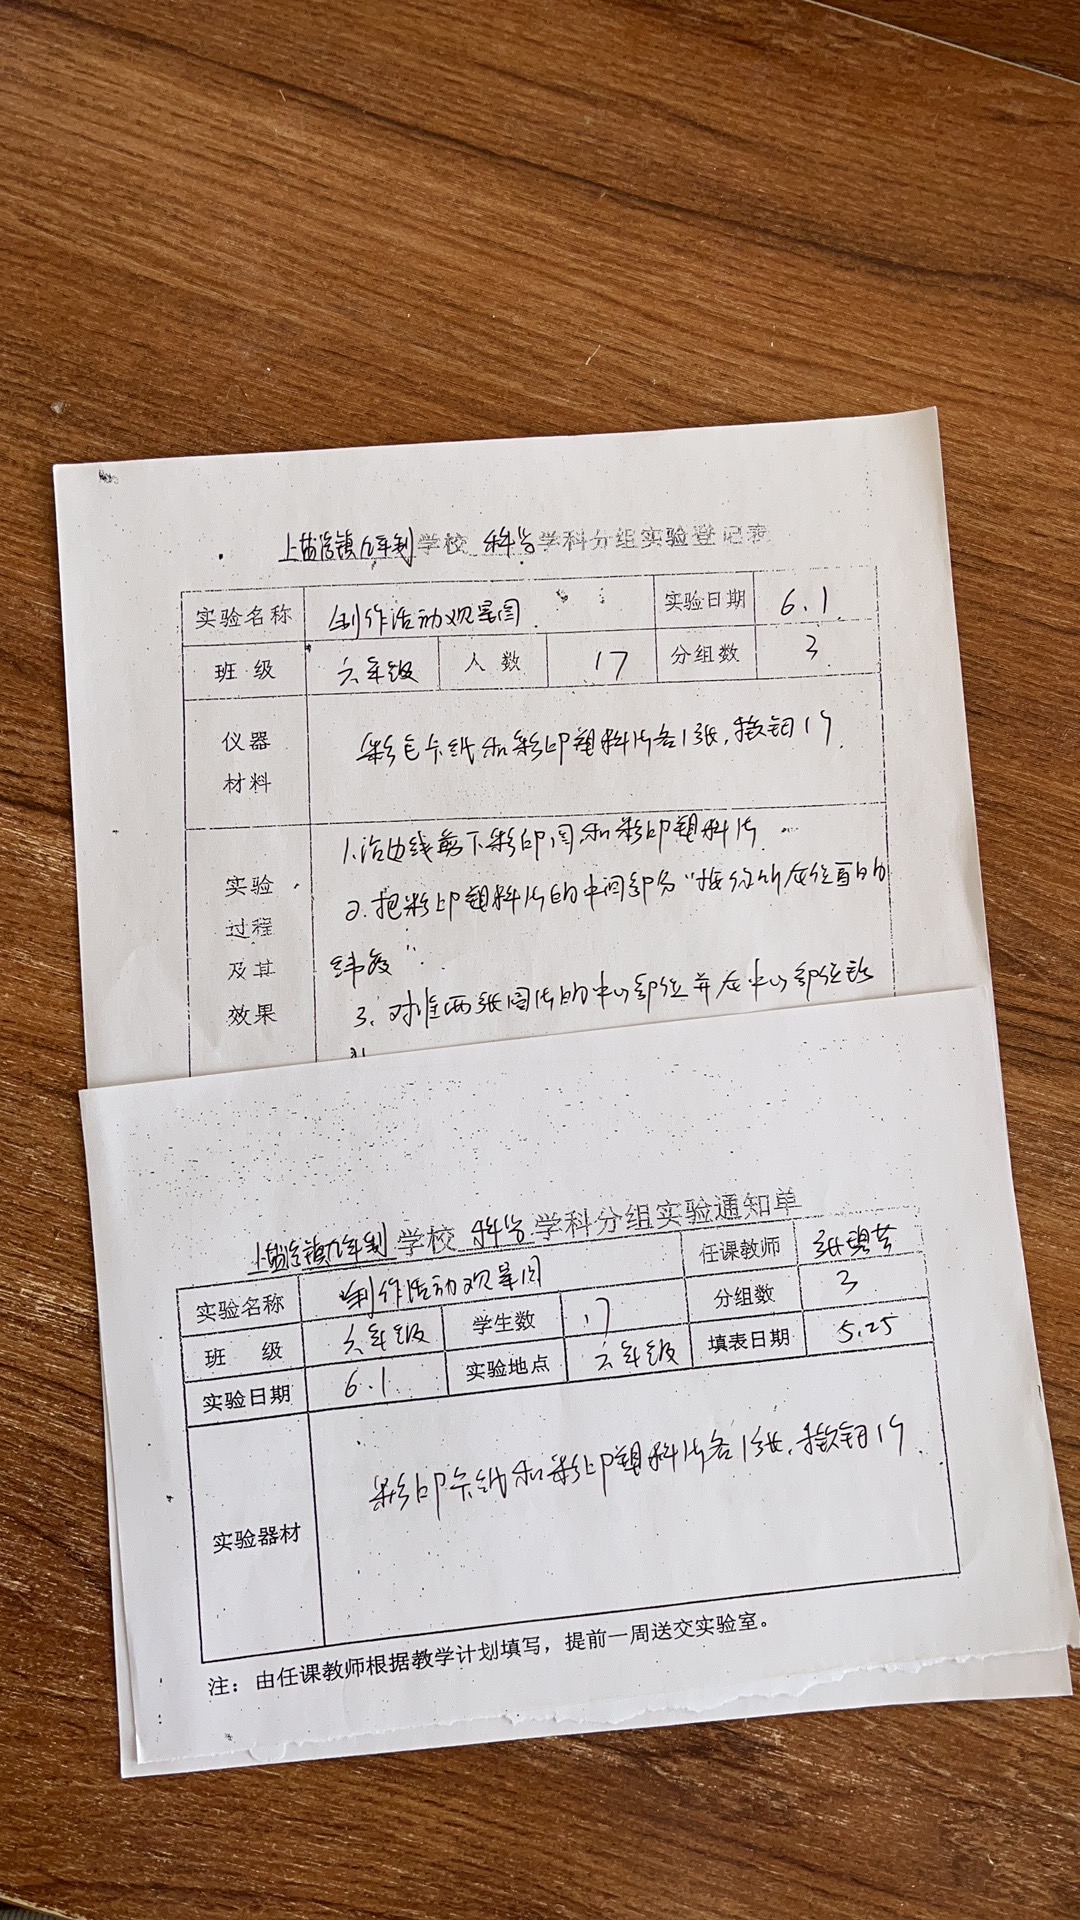 上盐池镇九年制学校 科学学科分组实验登记表
实验名称 制作活动观星图 实验日期 6.1
班级 六年级 人数 17 分组数 3
仪器材料 彩色卡纸和彩印塑料片各1张,揿钮1个.
实验过程及其效果
1.沿曲线剪下彩印图和彩印塑料片
2.把彩印塑料片的中间部分“按你所在位置的
纬度”
3.对准两张图片的中心部位并在中心部位
学校 科学学科分组实验通知单
实验名称 制作活动观星图 任课教师 张
班级 六年级 学生数 17 分组数 3
实验日期 6.1 实验地点 六年级 填表日期 5.25
实验器材 彩印卡纸和彩印塑料片各1张,揿钮1个.
注:由任课教师根据教学计划填写,提前一周送交实验室。